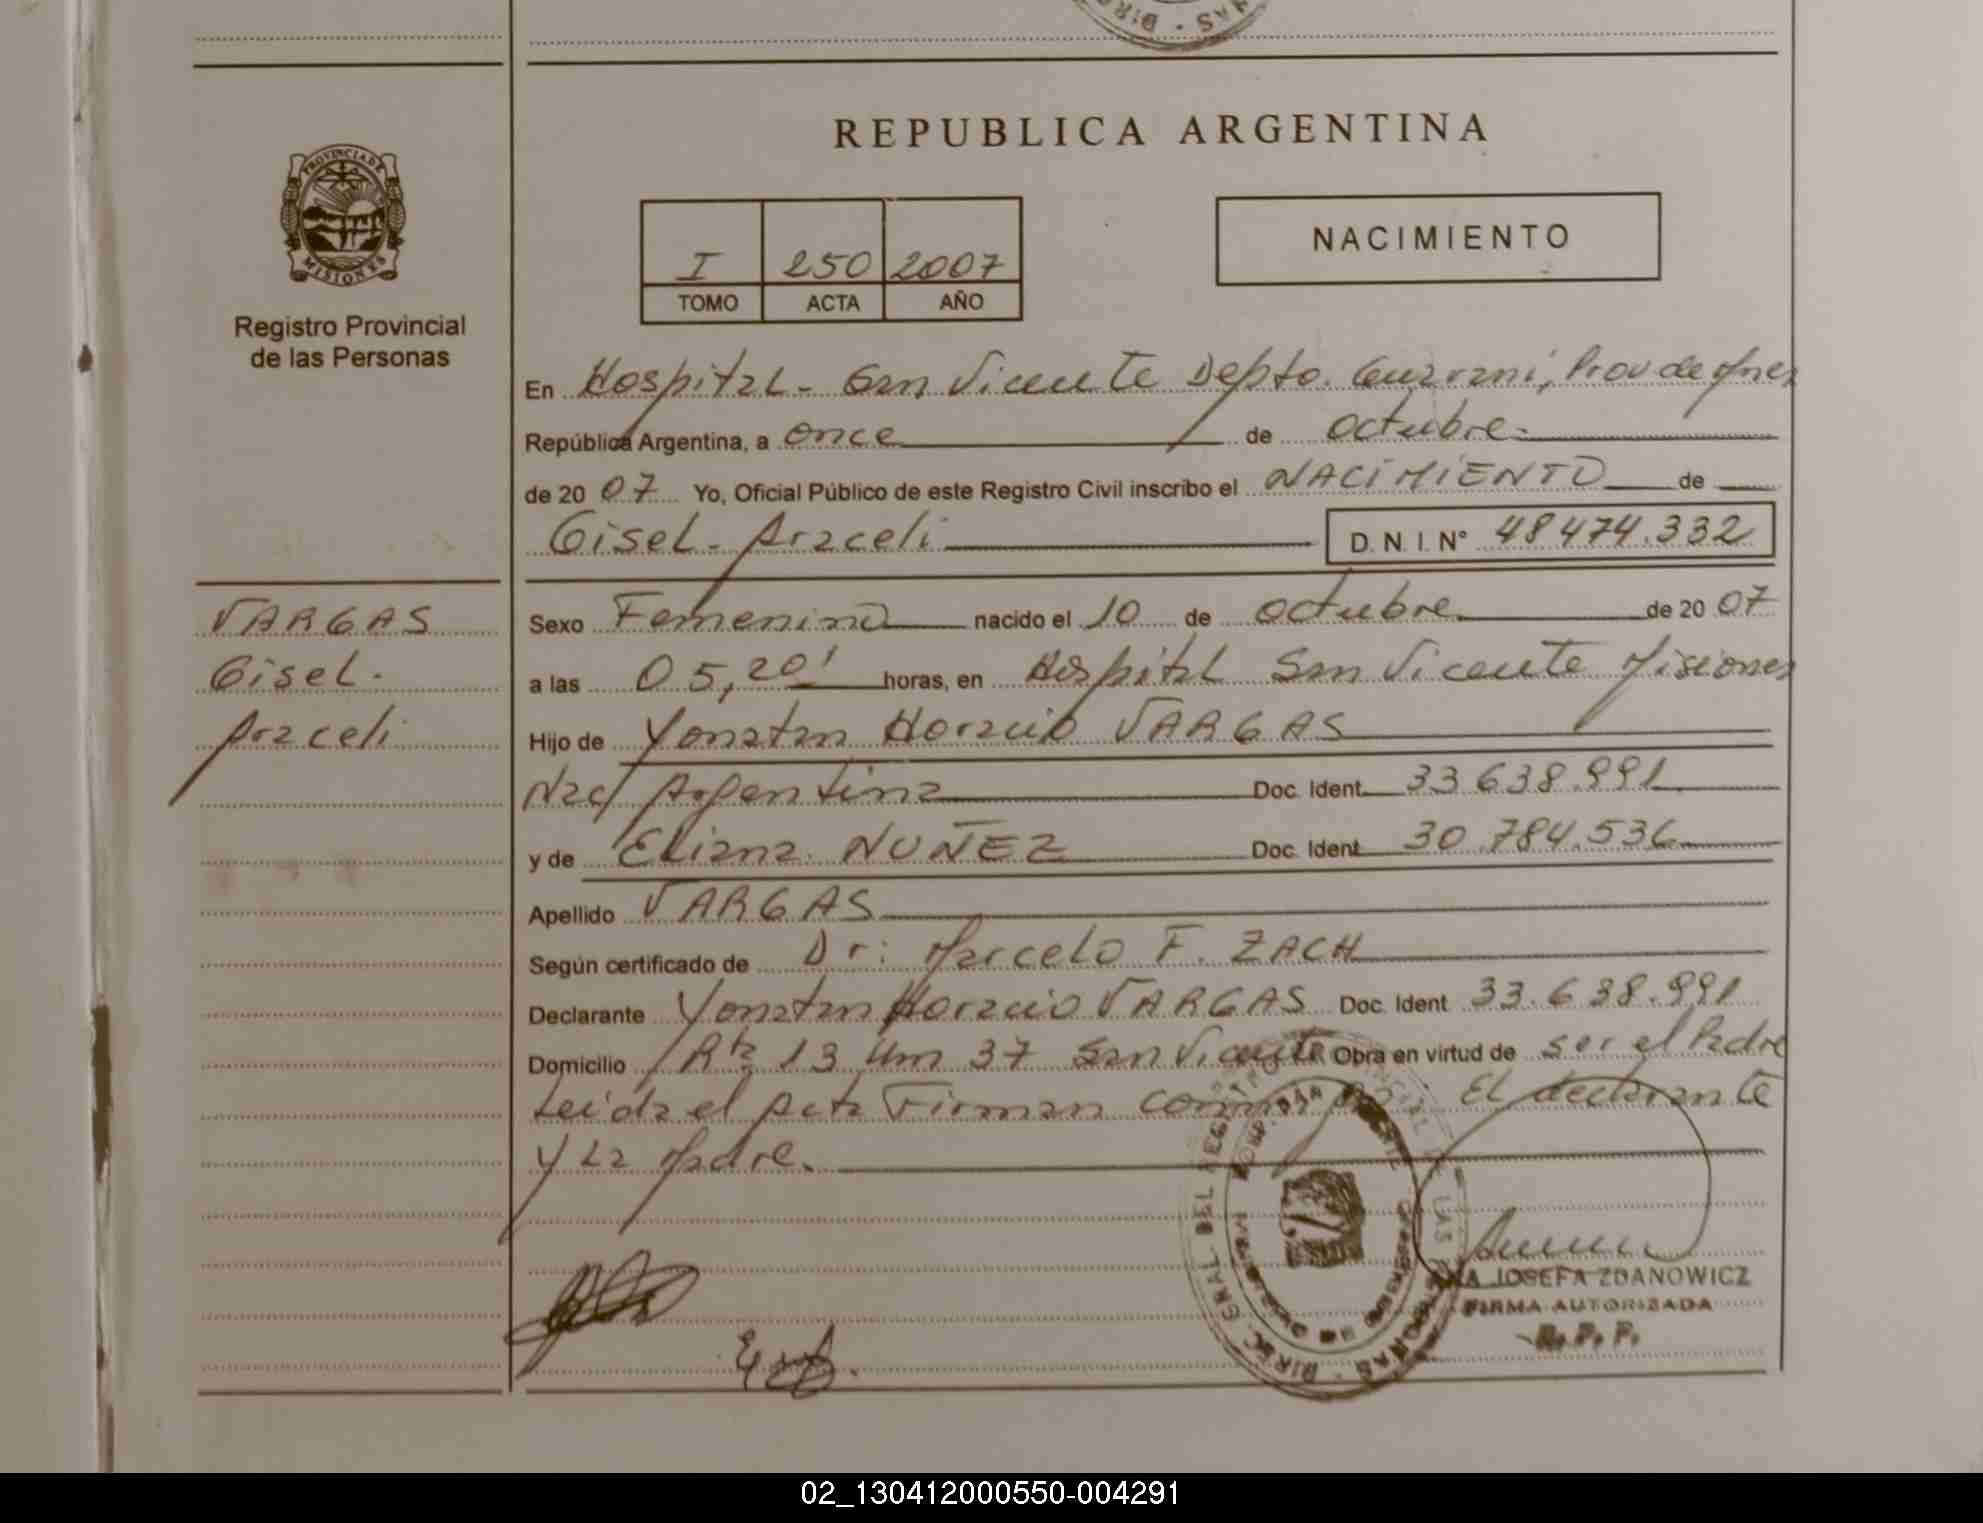 REPUBLICA ARGENTINA
PROVINCIA DE
MISIONES
Registro Provincial
de las Personas
I 250 2007
TOMO ACTA AÑO
NACIMIENTO
En Hospital - San Vicente Depto. Guarani, Prov de Mnes
República Argentina, a once de octubre.
de 20 07 Yo, Oficial Público de este Registro Civil inscribo el NACIMIENTO de
Gisel - Araceli D.N.I. N° 48474.332
VARGAS
Gisel -
Araceli
Sexo Femenino nacido el 10 de octubre de 20 07
a las 05,20' horas, en Hospital San Vicente Misiones
Hijo de Yonatan Horacio VARGAS
Nac/ Argentina Doc. Ident. 33638.991
y de Eliana NUÑEZ Doc. Ident. 30.784.536
Apellido VARGAS
Según certificado de Dr: Marcelo F. ZACH
Declarante Yonatan Horacio VARGAS Doc. Ident 33.638.991
Domicilio Rta 13 Km 37 San Vicente Obra en virtud de ser el Padre
Leida el Acta Firman conmigo El declarante
y La Madre.
JOSEFA ZDANOWICZ
FIRMA AUTORIZADA
R.P.P.
02_130412000550-004291